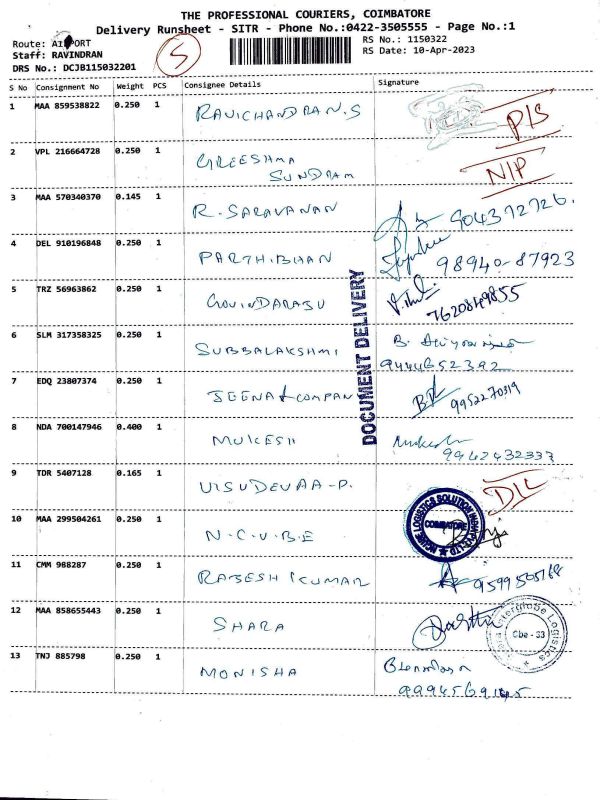 THE PROFESSIONAL COURIERS, COIMBATORE
Delivery Runsheet - SITR - Phone No.:0422-3505555 - Page No.:1
Route: AIRPORT
Staff: RAVINDRAN
DRS No.: DCJB115032201
5
RS No.: 1150322
RS Date: 10-Apr-2023
S No Consignment No Weight PCS Consignee Details Signature
1 MAA 859538822 0.250 1 RAVICHANDRAN.S P/S
2 VPL 216664728 0.250 1 GREESHMA
SUNDRAM N/P
3 MAA 570340370 0.145 1 R. SARAVANAN 904372726.
4 DEL 910196848 0.250 1 PARTHIBHAN 98940-87923
5 TRZ 56963862 0.250 1 GOVINDARAJU 7620849855
6 SLM 317358325 0.250 1 SUBBALAKSHMI B.
9444652392
7 EDQ 23807374 0.250 1 JEENA & COMPAN 9952270319
8 NDA 700147946 0.400 1 MUKESH Mukesh
9942432337
9 TDR 5407128 0.165 1 VISUDEVAA-P. D/L
10 MAA 299504261 0.250 1 N.C.U.B.E COIMBATORE
11 CMM 988287 0.250 1 RAJESH KUMAR 9599505168
12 MAA 858655443 0.250 1 SHARA
Interglobe Logistics
Cbe - 33
13 TNJ 885798 0.250 1 MONISHA
DOCUMENT DELIVERY